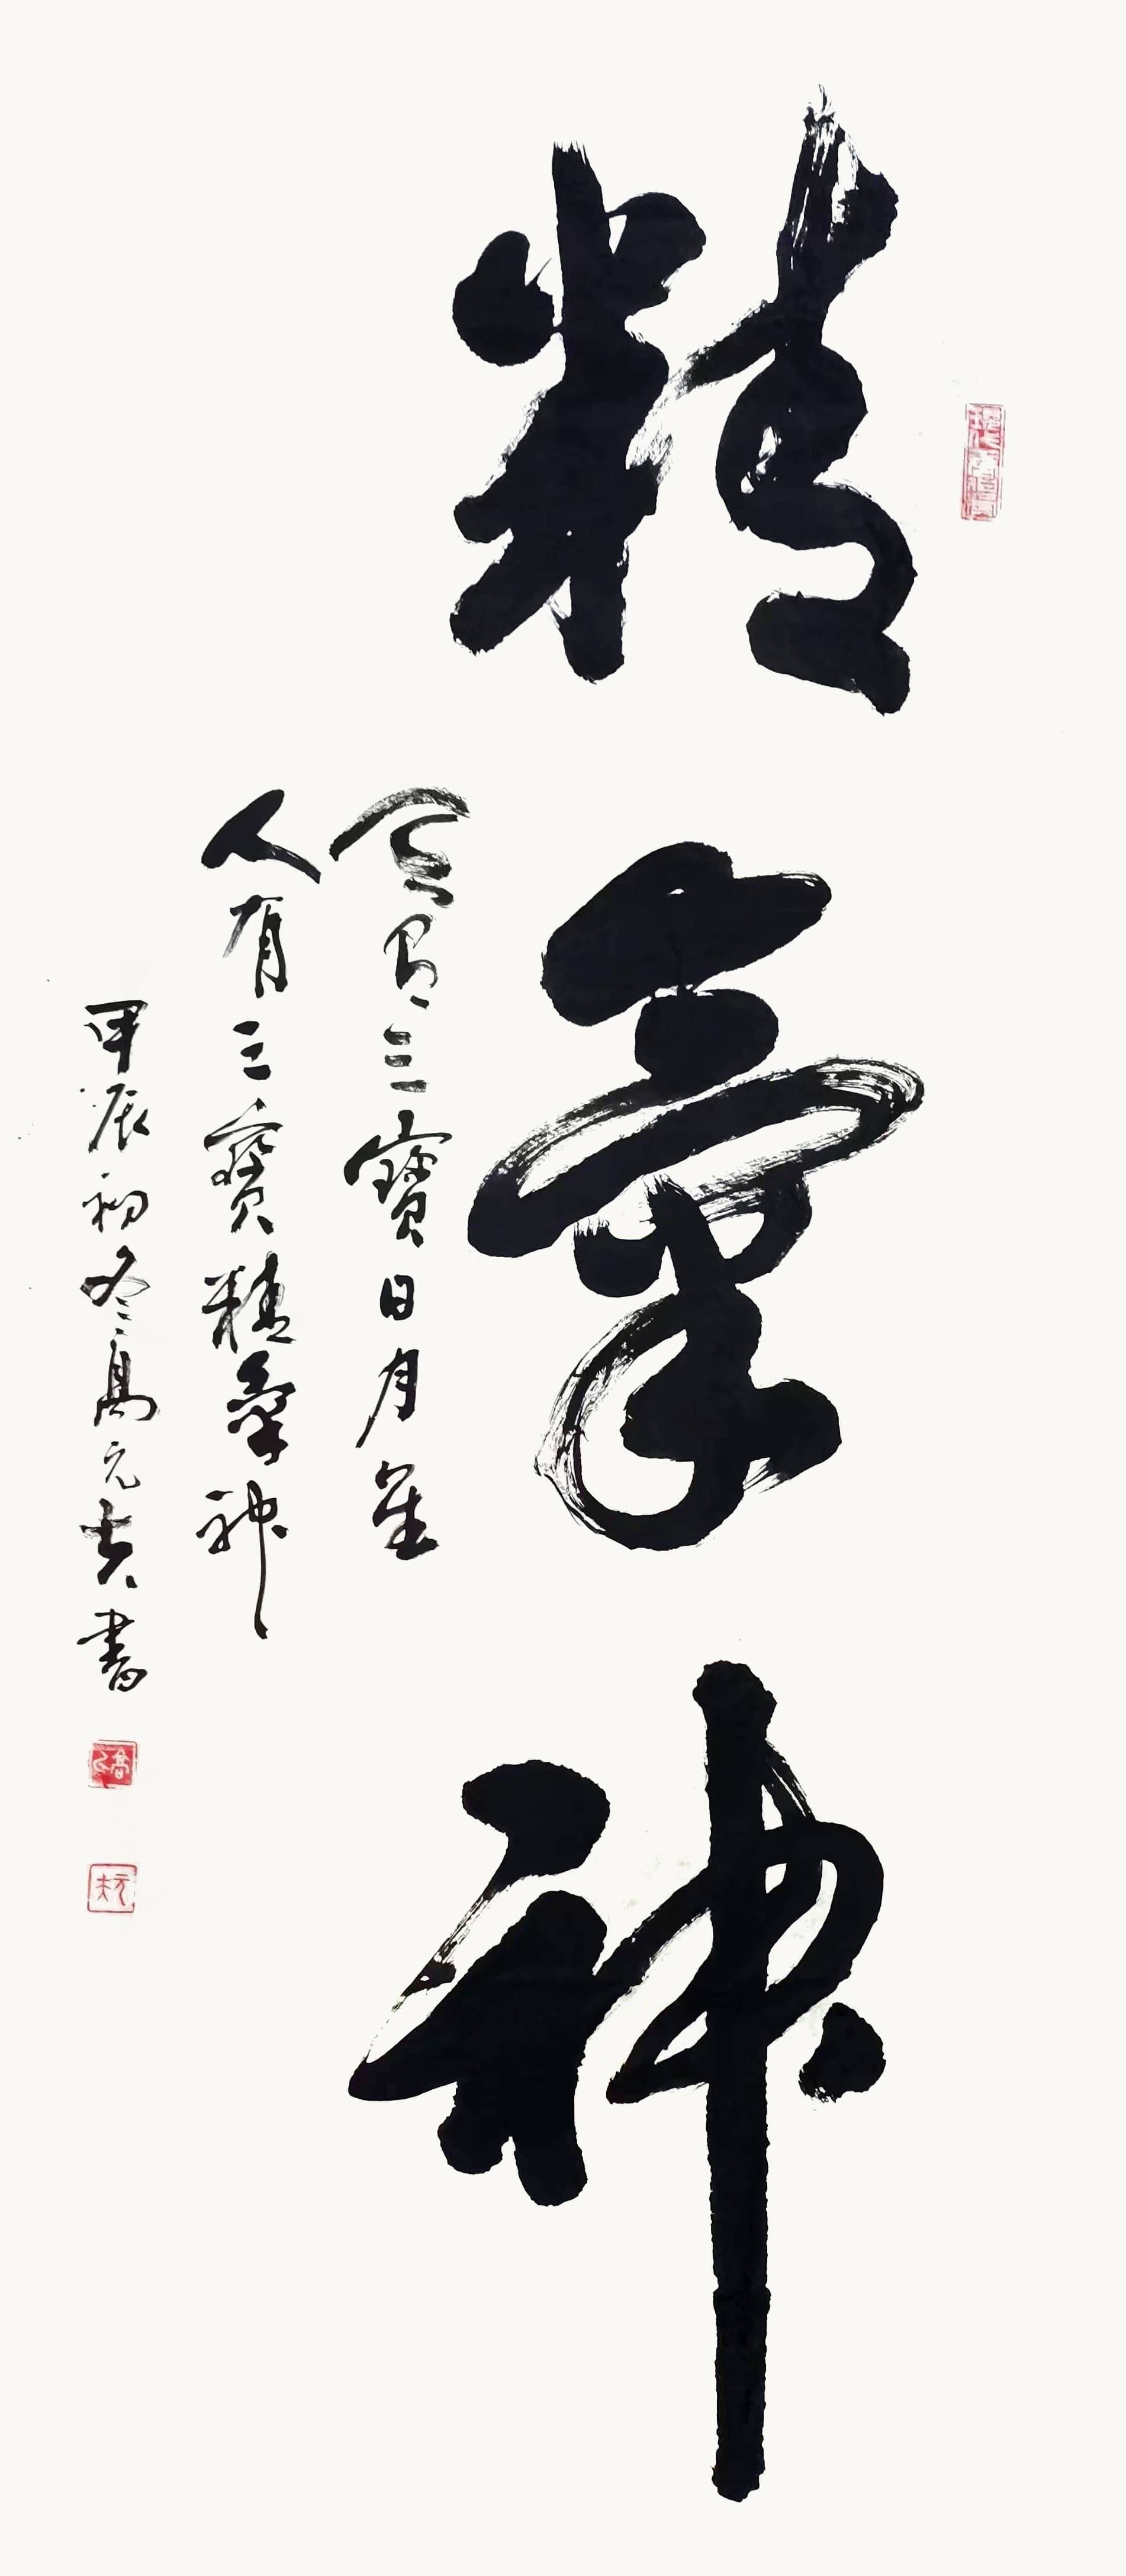 精氣神
天有三寶日月星
人有三寶精氣神
甲辰初冬高元夫書